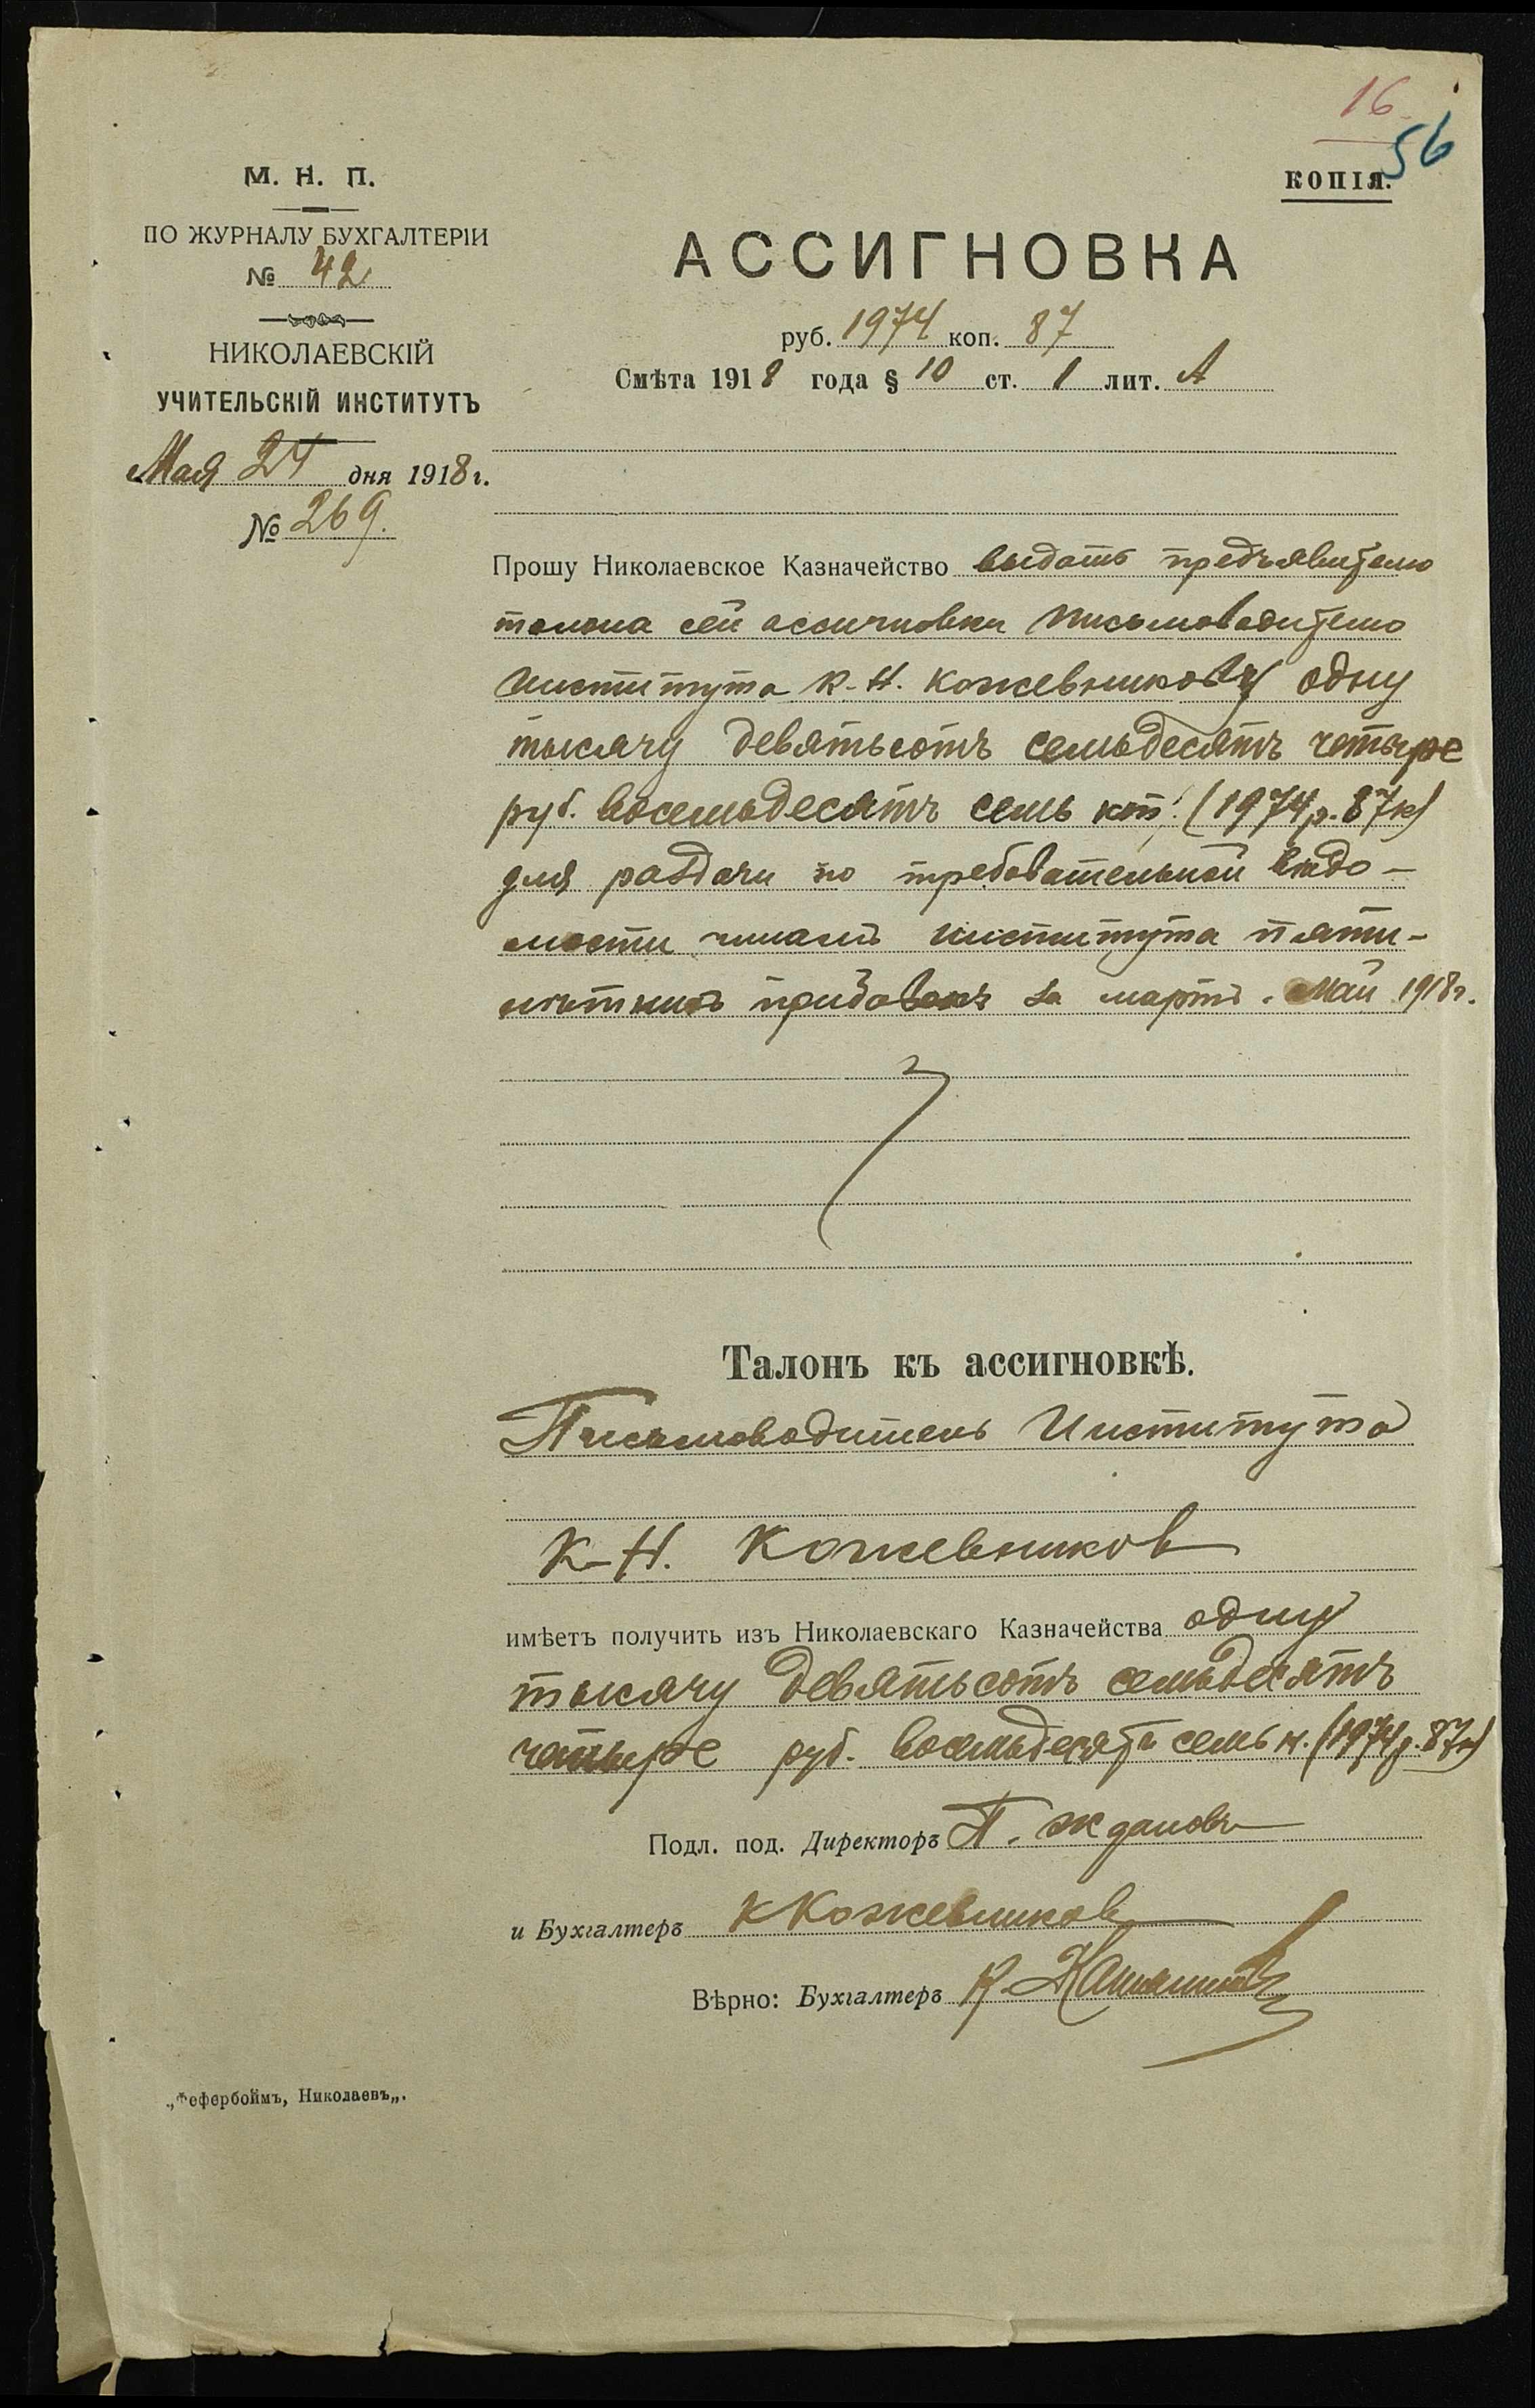 16
56
М. Н. П.
КОПІЯ.
ПО ЖУРНАЛУ БУХГАЛТЕРІИ
№ 42
НИКОЛАЕВСКІЙ
УЧИТЕЛЬСКІЙ ИНСТИТУТЪ
Мая 24 дня 1918 г.
№ 269.
АССИГНОВКА
руб. 1974 коп. 87
Смѣта 1918 года § 10 ст. 1 лит. А
Прошу Николаевское Казначейство выдать предъявителю
талона сей ассигновки письмоводителю
Института К. Н. Кожевникову одну
тысячу девятьсотъ семьдесятъ четыре
руб. восемьдесятъ семь коп. (1974 р. 87 к)
для раздачи по требовательной вѣдо-
мости чинамъ института пяти-
лѣтнихъ прибавокъ за мартъ - май 1918 г.
Талонъ къ ассигновкѣ.
Письмоводитель Института
К. Н. Кожевников
имѣетъ получить изъ Николаевскаго Казначейства одну
тысячу девятьсотъ семьдесятъ
четыре руб. восемьдесятъ семь к. (1974 р. 87 к)
Подл. под. Директоръ П. Ждановъ
и Бухгалтеръ К Кожевников
Вѣрно: Бухгалтеръ К.
„Фефербоймъ, Николаевъ„.